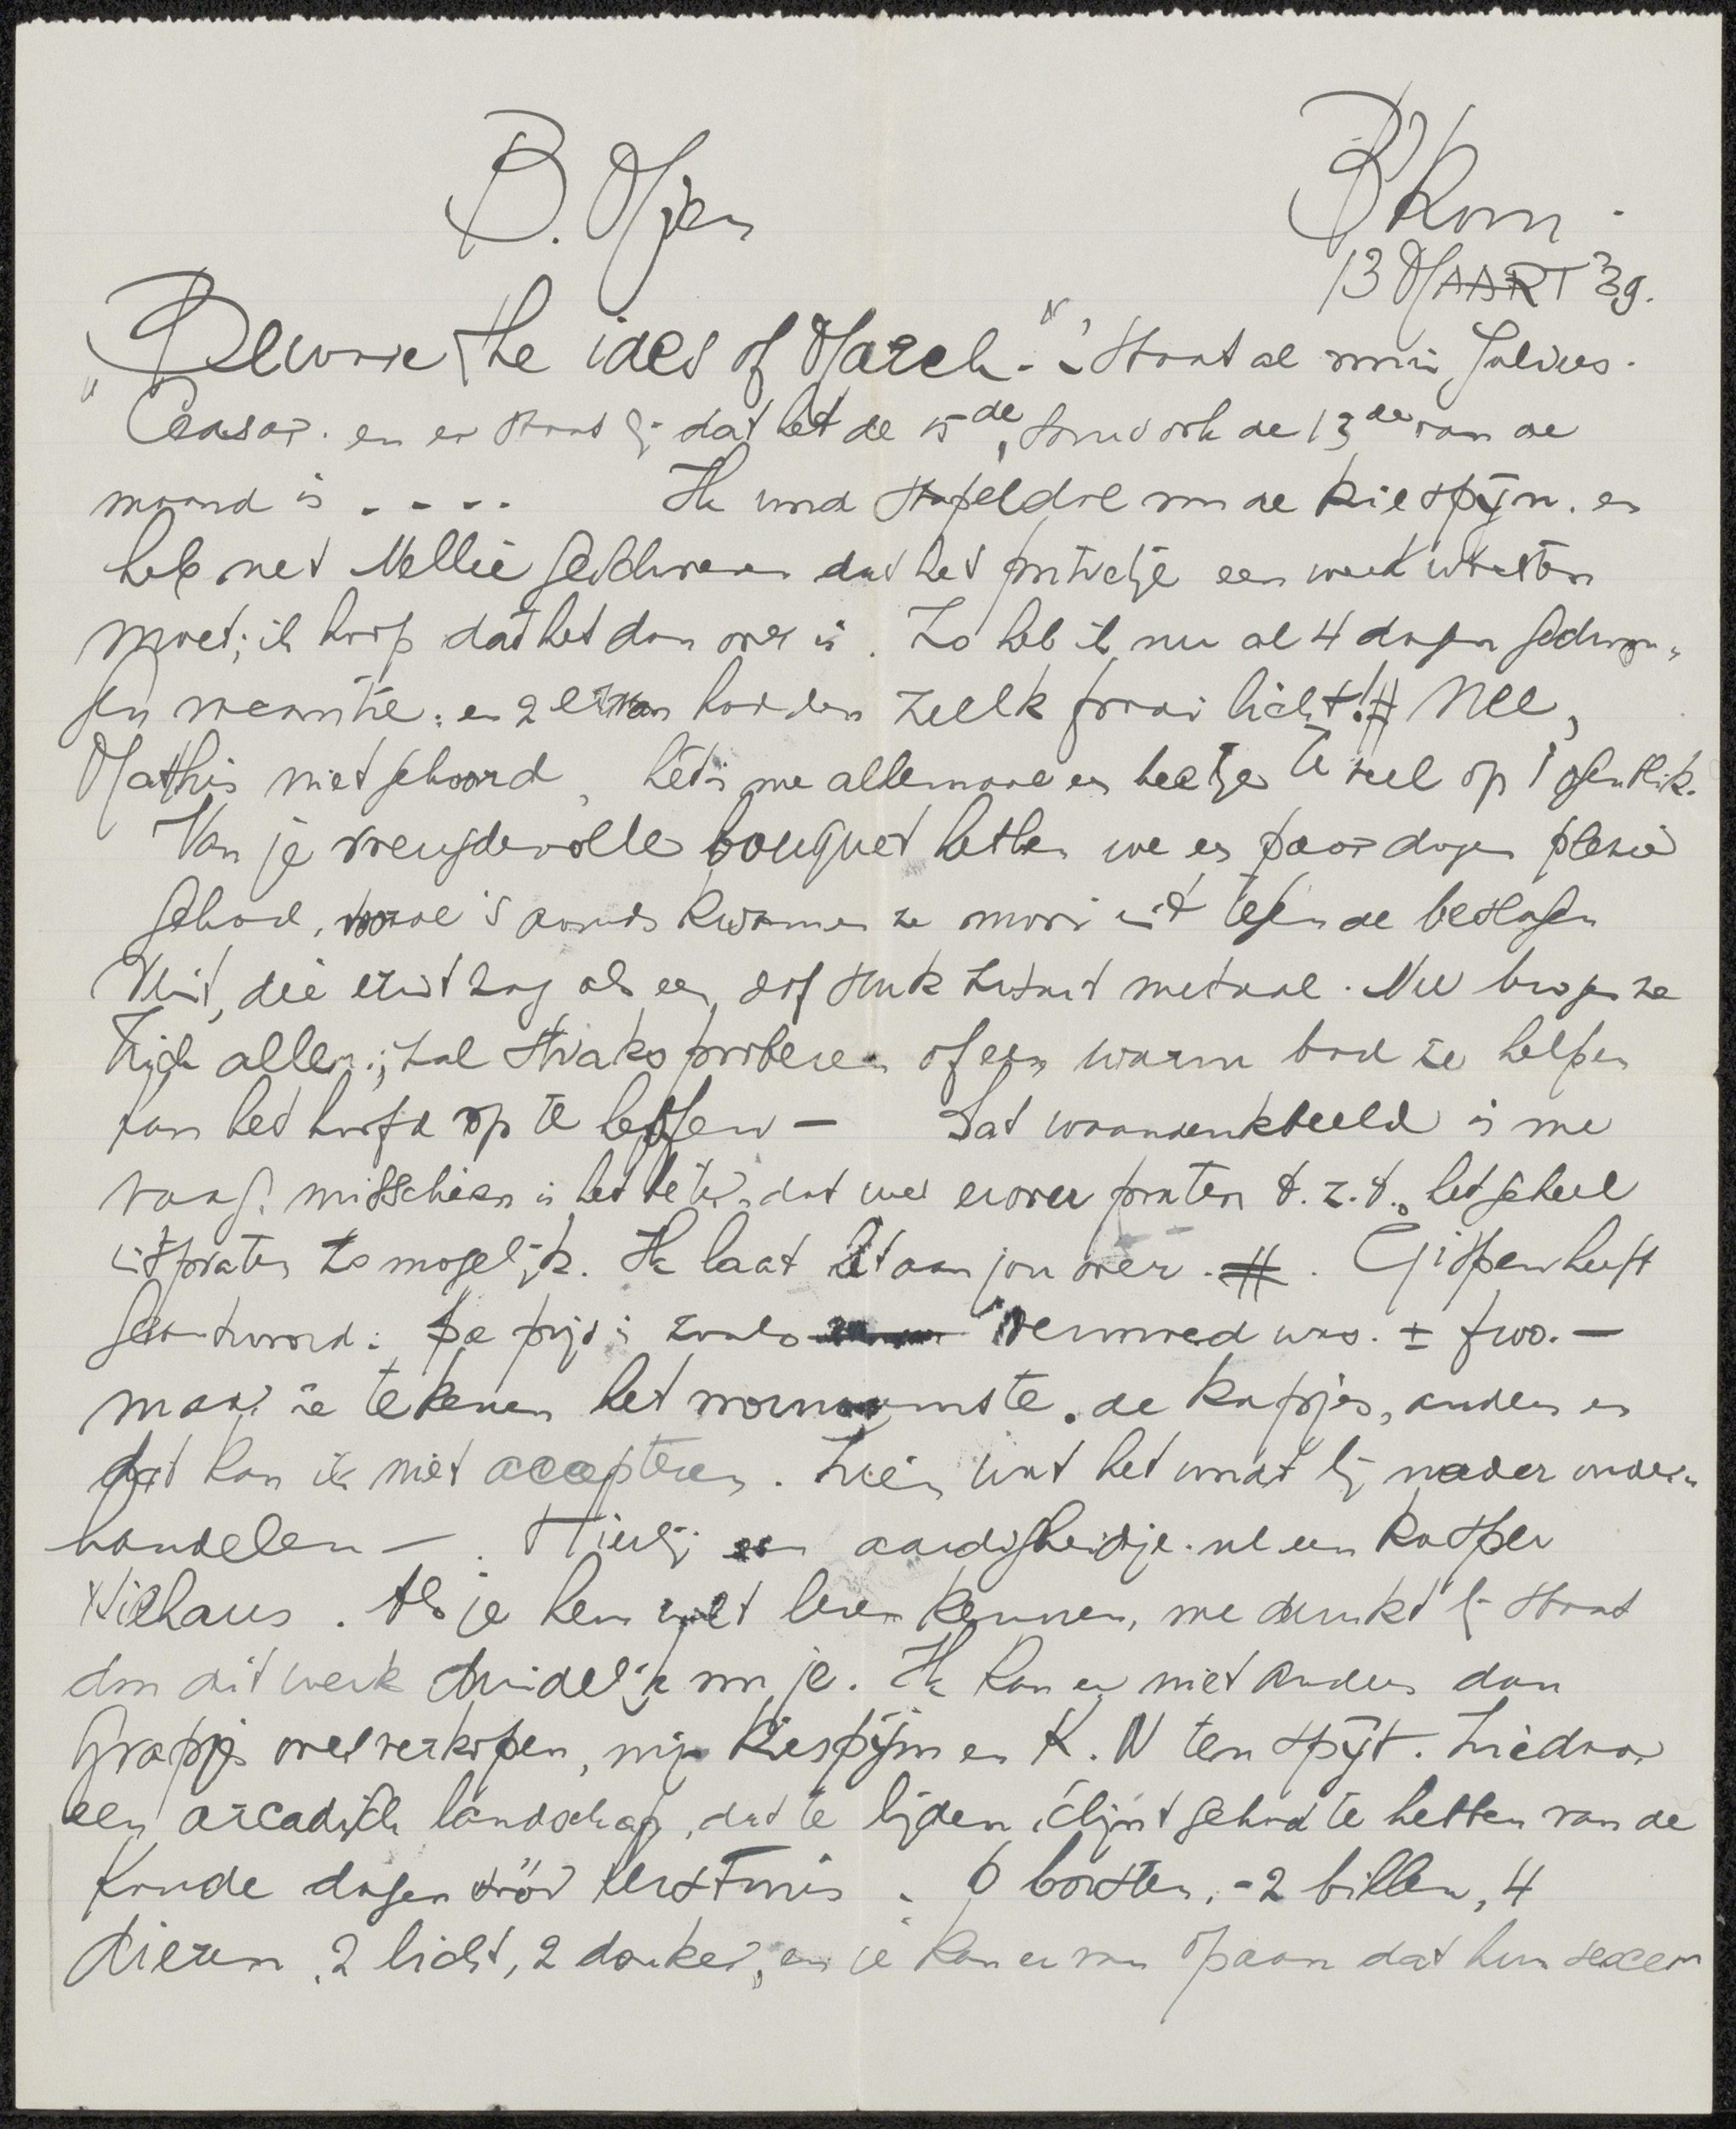 B. Mjen
BKom.
13 MAART 39.
"Beware the ides of March." Staat al in Julius.
Ceasar. en er staat bij dat het de 15de, soms ook de 13de van de
maand is .... Ik word stapeldol van de kiespijn. en
heb net Nellie geschreven dat het prentje een week wachten
moet; ik hoop dat het dan over is. Zo heb ik nu al 4 dagen gedwon-
gen vacantie: en 2 ervan hadden zulk fraai licht! # Nee,
Mathis niet gehoord, het is me allemaal een beetje te veel op 't ogenblik.
Van je vreugdevolle bouquet hebben we een paar dagen plezier
gehad, vooral 's avonds kwamen ze mooi uit tegen de beslagen
ruit, die eruit zag als een dof stuk zwart metaal. Nu buigen ze
zich allen; zal straks proberen of een warm bad ze helpen
kan het hoofd op te heffen — Dat waandenkbeeld is me
vaag. misschien is het beter, dat we erover praten d.z.d., het geheel
uitpraten zo mogelijk. Ik laat het aan jou over. # . Gispen heeft
geantwoord: De prijs is zoals vermoed was. ± f 100.—
maar ze tekenen het voornaamste. de kapjes, anders en
dat kan ik niet accepteren. Zien wat het wordt bij nader onder-
handelen —. Hierbij een aardigheidje. nl een Kasper
Niehaus. Als je hem wilt leren kennen, me dunkt hij staat
dan dit werk duidelijk voor je. Ik kan er niet anders dan
grapjes over verkopen, mijn kiespijn en K.N ten spijt. Ziedaar
een arcadisch landschap, dat te lijden schijnt gehad te hebben van de
koude dagen vóór Kerstmis. 6 borsten, - 2 billen, 4
dieren, 2 licht, 2 donker, en je kan er van op aan dat hun sexen